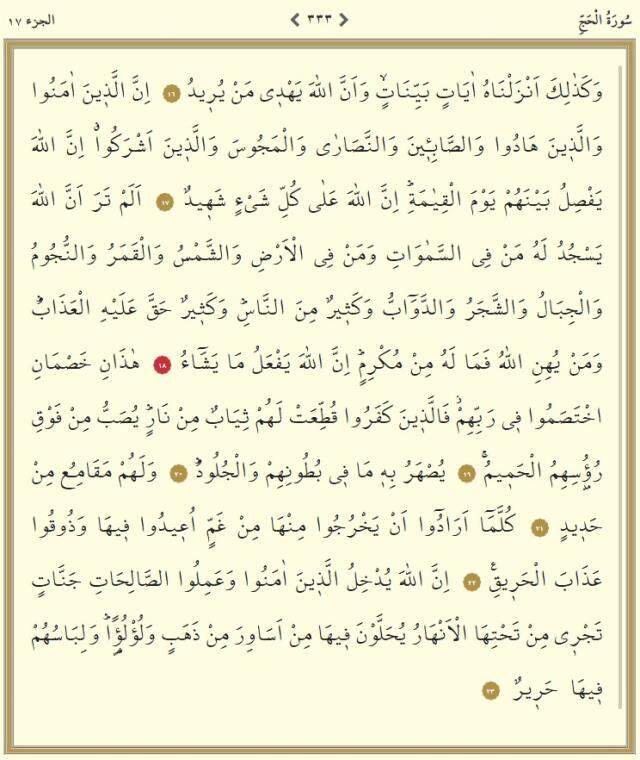 سُورَةُ الْحَجِّ ٣٣٣ الجزء ١٧
وَكَذٰلِكَ اَنْزَلْنَاهُ اٰيَاتٍ بَيِّنَاتٍۙ وَاَنَّ اللّٰهَ يَهْد۪ي مَنْ يُر۪يدُ ١٦ اِنَّ الَّذ۪ينَ اٰمَنُوا
وَالَّذ۪ينَ هَادُوا وَالصَّابِـ۪ٔينَ وَالنَّصَارٰى وَالْمَجُوسَ وَالَّذ۪ينَ اَشْرَكُواۗ اِنَّ اللّٰهَ
يَفْصِلُ بَيْنَهُمْ يَوْمَ الْقِيٰمَةِۜ اِنَّ اللّٰهَ عَلٰى كُلِّ شَيْءٍ شَه۪يدٌ ١٧ اَلَمْ تَرَ اَنَّ اللّٰهَ
يَسْجُدُ لَهُ مَنْ فِي السَّمٰوَاتِ وَمَنْ فِي الْاَرْضِ وَالشَّمْسُ وَالْقَمَرُ وَالنُّجُومُ
وَالْجِبَالُ وَالشَّجَرُ وَالدَّوَٓابُّ وَكَث۪يرٌ مِنَ النَّاسِۜ وَكَث۪يرٌ حَقَّ عَلَيْهِ الْعَذَابُۜ
وَمَنْ يُهِنِ اللّٰهُ فَمَا لَهُ مِنْ مُكْرِمٍۜ اِنَّ اللّٰهَ يَفْعَلُ مَا يَشَٓاءُ ١٨ هٰذَانِ خَصْمَانِ
اخْتَصَمُوا ف۪ي رَبِّهِمْۘ فَالَّذ۪ينَ كَفَرُوا قُطِّعَتْ لَهُمْ ثِيَابٌ مِنْ نَارٍۜ يُصَبُّ مِنْ فَوْقِ
رُؤُ۫سِهِمُ الْحَم۪يمُۚ ١٩ يُصْهَرُ بِه۪ مَا ف۪ي بُطُونِهِمْ وَالْجُلُودُۜ ٢٠ وَلَهُمْ مَقَامِعُ مِنْ
حَد۪يدٍ ٢١ كُلَّمَٓا اَرَادُٓوا اَنْ يَخْرُجُوا مِنْهَا مِنْ غَمٍّ اُع۪يدُوا ف۪يهَا وَذُوقُوا
عَذَابَ الْحَر۪يقِ۟ ٢٢ اِنَّ اللّٰهَ يُدْخِلُ الَّذ۪ينَ اٰمَنُوا وَعَمِلُوا الصَّالِحَاتِ جَنَّاتٍ
تَجْر۪ي مِنْ تَحْتِهَا الْاَنْهَارُ يُحَلَّوْنَ ف۪يهَا مِنْ اَسَاوِرَ مِنْ ذَهَبٍ وَلُؤْلُؤً۬اۜ وَلِبَاسُهُمْ
ف۪يهَا حَر۪يرٌ ٢٣